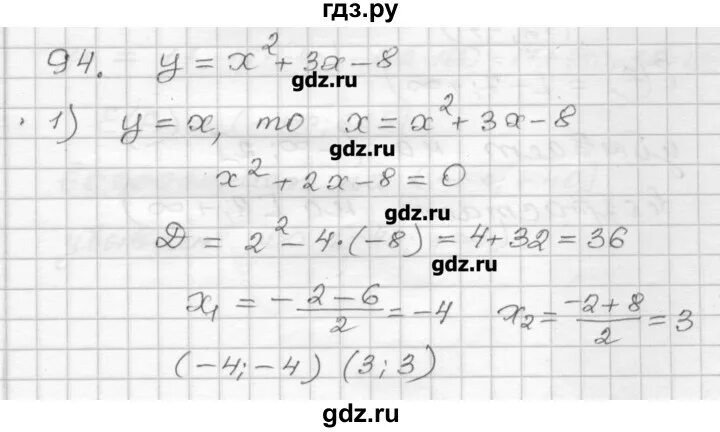 гдз.ру
94. y = x² + 3x - 8
gdz.ru
1) y = x, то x = x² + 3x - 8
gdz.ru
x² + 2x - 8 = 0
gdz.ru
Д = 2² - 4·(-8) = 4 + 32 = 36
gdz.ru
x₁ = -\frac{2-6}{2} = -4 x₂ = \frac{-2+8}{2} = 3
gdz.ru
(-4; -4) (3; 3)
gdz.ru